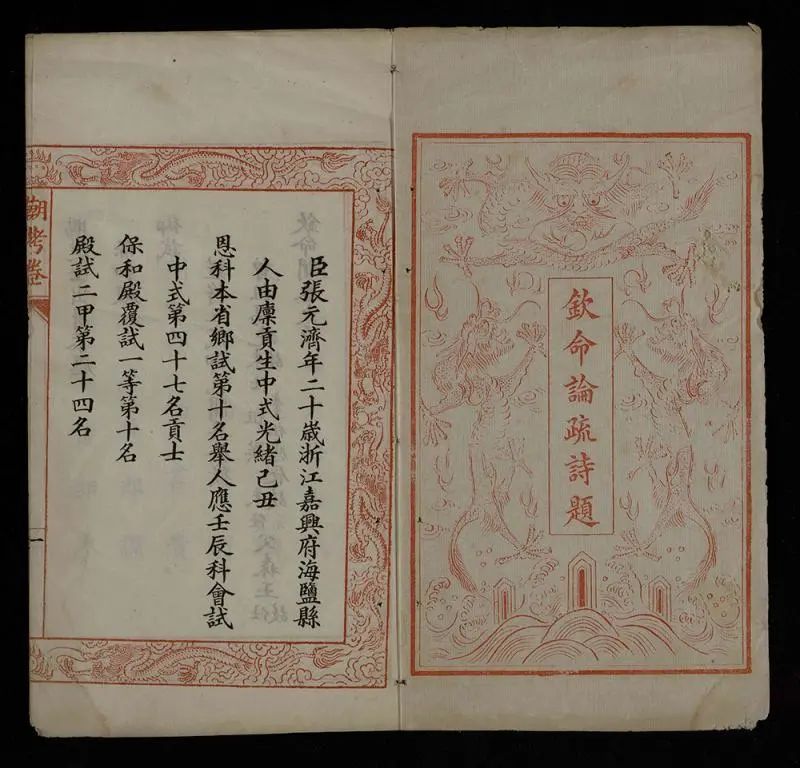 欽命論疏詩題
臣張元濟年二十歲浙江嘉興府海鹽縣
人由廩貢生中式光緒己丑
恩科本省鄉試第十名舉人應壬辰科會試
中式第四十七名貢士
保和殿覆試一等第十名
殿試二甲第二十四名
朝考卷
一